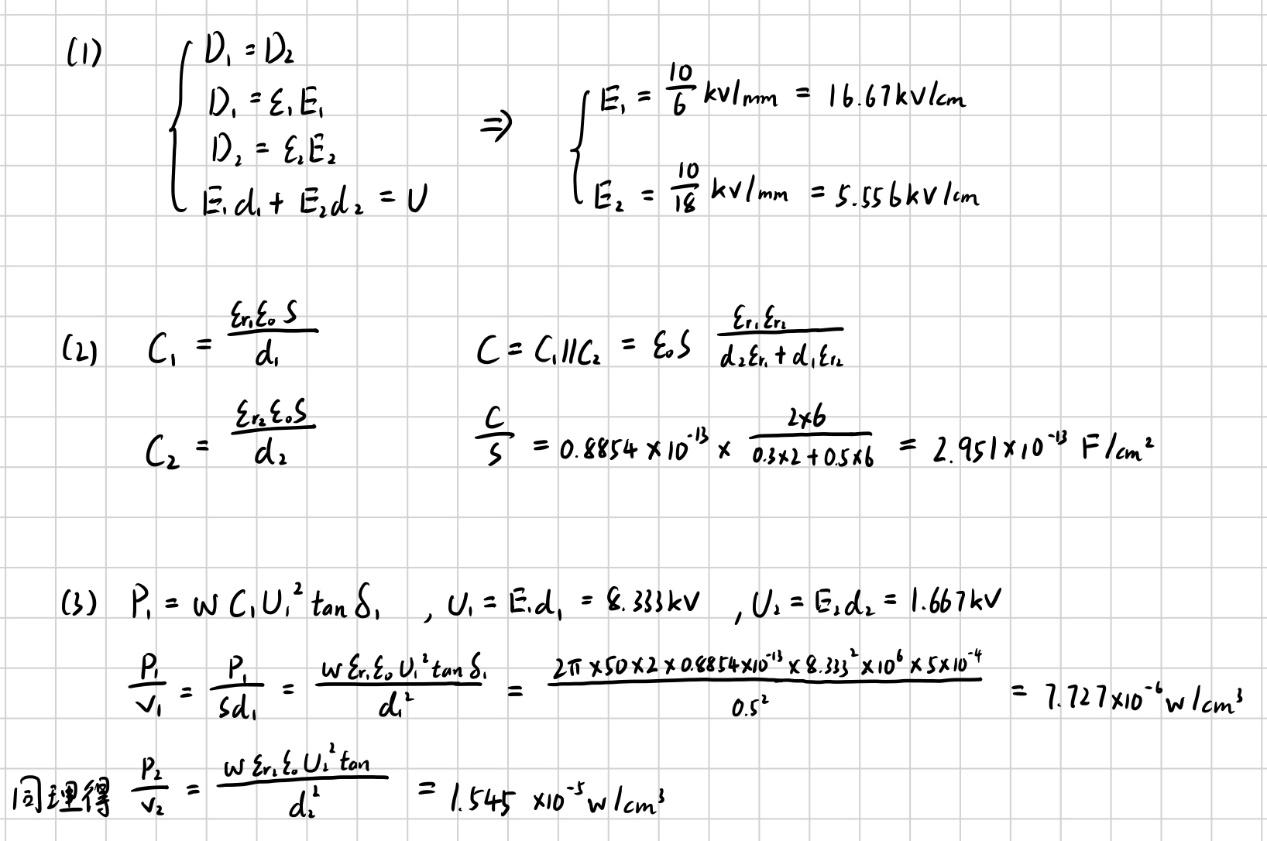 (1) { D₁ = D₂
D₁ = ε₁E₁
D₂ = ε₂E₂
E₁d₁ + E₂d₂ = U
⇒ { E₁ = 10/6 kv/mm = 16.67kv/cm
E₂ = 10/18 kv/mm = 5.556kv/cm
(2) C₁ = εr₁ε₀S/d₁
C₂ = εr₂ε₀S/d₂
C = C₁//C₂ = ε₀S εr₁εr₂/(d₂εr₁ + d₁εr₂)
C/S = 0.8854×10⁻¹³ × 2×6/(0.3×2+0.5×6) = 2.951×10⁻¹³ F/cm²
(3) P₁ = wC₁U₁²tanδ₁ , U₁ = E₁d₁ = 8.333kV , U₂ = E₂d₂ = 1.667kV
P₁/V₁ = P₁/Sd₁ = wεr₁ε₀U₁²tanδ₁/d₁² = 2π×50×2×0.8854×10⁻¹³×8.333²×10⁶×5×10⁻⁴/0.5² = 7.727×10⁻⁶w/cm³
同理得 P₂/V₂ = wεr₂ε₀U₂²tan/d₂² = 1.545 ×10⁻⁵w/cm³